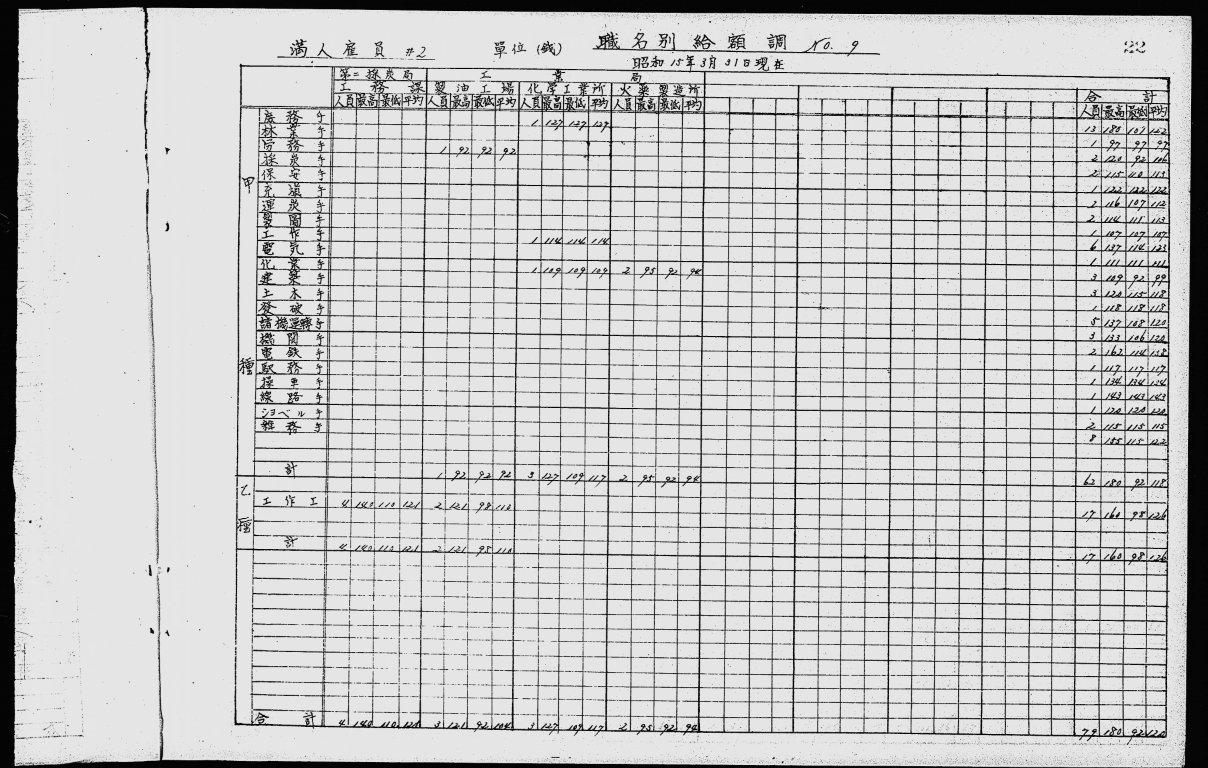 22
満人雇員 #2 單位(錢) 職名別給額調 No. 9
昭和15年3月31日現在
第二採炭局 工業局
工務課 製油工場 化学工業所 火薬製造所 合計
人員 最高 最低 平均 人員 最高 最低 平均 人員 最高 最低 平均 人員 最高 最低 平均 人員 最高 最低 平均
甲種
庶務手 1 127 127 127 13 180 107
林業手 1 97 97 97
労務手 1 92 92 92 2 120 92 106
採炭手 2 115 110 113
保安手 1 122 122 122
充填手 2 116 107 112
運炭手 2 114 111 113
製図手 1 107 107 107
工作手 1 114 114 114 6 137 114 123
電気手 1 111 111 111
化業手 1 109 109 109 2 95 92 94 3 109 92 99
建築手 3 120 115 118
土木手 1 118 118 118
発破手 5 137 108 120
諸機運轉手 3 133 106 120
機関手 2 162 114 138
電鉄手 1 117 117 117
駅務手 1 134 134 134
操車手 1 143 143 143
線路手 1 120 120 120
ショベル手 2 115 115 115
雑務手 8 155 115 122
計 1 92 92 92 3 127 109 117 2 95 92 94 62 180 92 118
乙種
工作工 4 140 110 121 2 121 98 110 17 160 98 126
計 4 140 110 121 2 121 98 110 17 160 98 126
合計 4 140 110 121 3 121 92 104 3 127 109 117 2 95 92 94 79 180 92 120